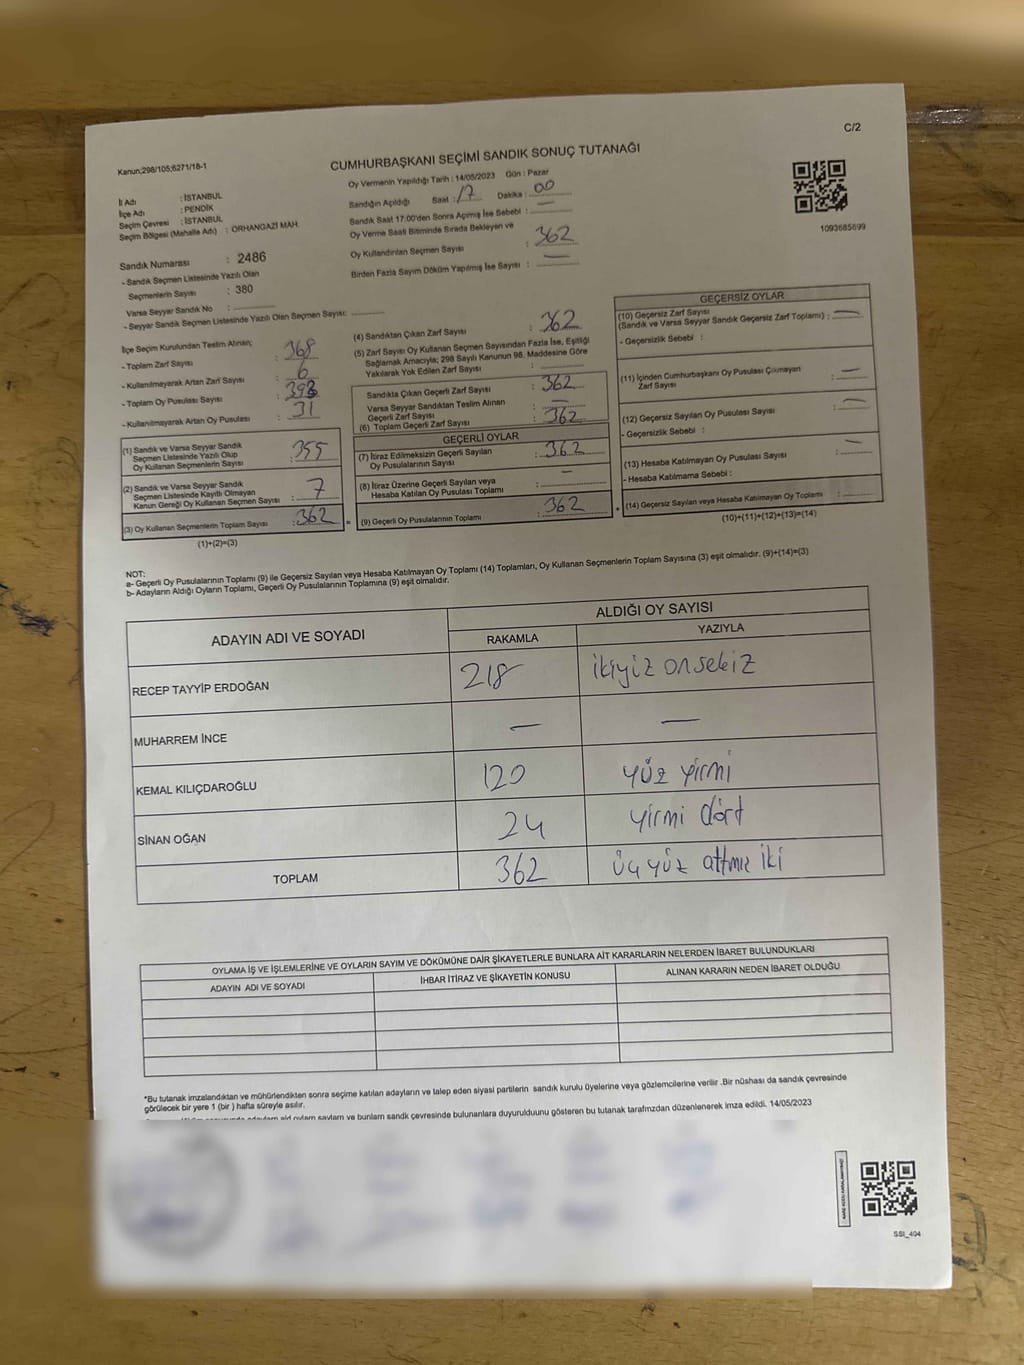 C/2
Kanun;298/105;6271/18-1
CUMHURBAŞKANI SEÇİMİ SANDIK SONUÇ TUTANAĞI
İl Adı : İSTANBUL
İlçe Adı : PENDİK
Seçim Çevresi : İSTANBUL
Seçim Bölgesi (Mahalle Adı) : ORHANGAZİ MAH.
Oy Vermenin Yapıldığı Tarih : 14/05/2023 Gün : Pazar
Sandığın Açıldığı Saat : 17 Dakika : 00
Sandık Saat 17:00'den Sonra Açımış İse Sebebi : —
Oy Verme Saati Bitiminde Sırada Bekleyen ve
Oy Kullandırılan Seçmen Sayısı : 362
Birden Fazla Sayım Döküm Yapılmış İse Sayısı : —
1093685699
Sandık Numarası : 2486
- Sandık Seçmen Listesinde Yazılı Olan
Seçmenlerin Sayısı : 380
Varsa Seyyar Sandık No :
- Seyyar Sandık Seçmen Listesinde Yazılı Olan Seçmen Sayısı:
İlçe Seçim Kurulundan Teslim Alınan;
- Toplam Zarf Sayısı : 368
- Kullanılmayarak Artan Zarf Sayısı : 6
- Toplam Oy Pusulası Sayısı : 393
- Kullanılmayarak Artan Oy Pusulası : 31
(1) Sandık ve Varsa Seyyar Sandık
Seçmen Listesinde Yazılı Olup
Oy Kullanan Seçmenlerin Sayısı : 355
(2) Sandık ve Varsa Seyyar Sandık
Seçmen Listesinde Kayıtlı Olmayan
Kanun Gereği Oy Kullanan Seçmen Sayısı : 7
(3) Oy Kullanan Seçmenlerin Toplam Sayısı : 362
(1)+(2)=(3)
(4) Sandıktan Çıkan Zarf Sayısı : 362
(5) Zarf Sayısı Oy Kullanan Seçmen Sayısından Fazla İse, Eşitliği
Sağlamak Amacıyla; 298 Sayılı Kanunun 98. Maddesine Göre
Yakılarak Yok Edilen Zarf Sayısı :
Sandıkta Çıkan Geçerli Zarf Sayısı : 362
Varsa Seyyar Sandıktan Teslim Alınan
Geçerli Zarf Sayısı : —
(6) Toplam Geçerli Zarf Sayısı : 362
GEÇERLİ OYLAR
(7) İtiraz Edilmeksizin Geçerli Sayılan
Oy Pusulalarının Sayısı : 362
(8) İtiraz Üzerine Geçerli Sayılan veya
Hesaba Katılan Oy Pusulası Toplamı : —
(9) Geçerli Oy Pusulalarının Toplamı : 362
GEÇERSİZ OYLAR
(10) Geçersiz Zarf Sayısı
(Sandık ve Varsa Seyyar Sandık Geçersiz Zarf Toplamı) : —
- Geçersizlik Sebebi :
(11) İçinden Cumhurbaşkanı Oy Pusulası Çıkmayan
Zarf Sayısı : —
(12) Geçersiz Sayılan Oy Pusulası Sayısı : —
- Geçersizlik Sebebi :
(13) Hesaba Katılmayan Oy Pusulası Sayısı : —
- Hesaba Katılmama Sebebi :
(14) Geçersiz Sayılan veya Hesaba Katılmayan Oy Toplamı :
(10)+(11)+(12)+(13)=(14)
NOT:
a- Geçerli Oy Pusulalarının Toplamı (9) ile Geçersiz Sayılan veya Hesaba Katılmayan Oy Toplamı (14) Toplamları, Oy Kullanan Seçmenlerin Toplam Sayısına (3) eşit olmalıdır. (9)+(14)=(3)
b- Adayların Aldığı Oyların Toplamı, Geçerli Oy Pusulalarının Toplamına (9) eşit olmalıdır.
ADAYIN ADI VE SOYADI
ALDIĞI OY SAYISI
RAKAMLA YAZIYLA
RECEP TAYYİP ERDOĞAN 218 ikiyüz onsekiz
MUHARREM İNCE — —
KEMAL KILIÇDAROĞLU 120 yüz yirmi
SİNAN OĞAN 24 yirmi dört
TOPLAM 362 üçyüz altmış iki
OYLAMA İŞ VE İŞLEMLERİNE VE OYLARIN SAYIM VE DÖKÜMÜNE DAİR ŞİKAYETLERLE BUNLARA AİT KARARLARIN NELERDEN İBARET BULUNDUKLARI
ADAYIN ADI VE SOYADI İHBAR İTİRAZ VE ŞİKAYETİN KONUSU ALINAN KARARIN NEDEN İBARET OLDUĞU
*Bu tutanak imzalandıktan ve mühürlendikten sonra seçime katılan adayların ve talep eden siyasi partilerin sandık kurulu üyelerine veya gözlemcilerine verilir .Bir nüshası da sandık çevresinde
görülecek bir yere 1 (bir ) hafta süreyle asılır.
bulunanlara duyurulduunu gösteren bu tutanak tarafımızdan düzenlenerek imza edildi. 14/05/2023
SSI_404